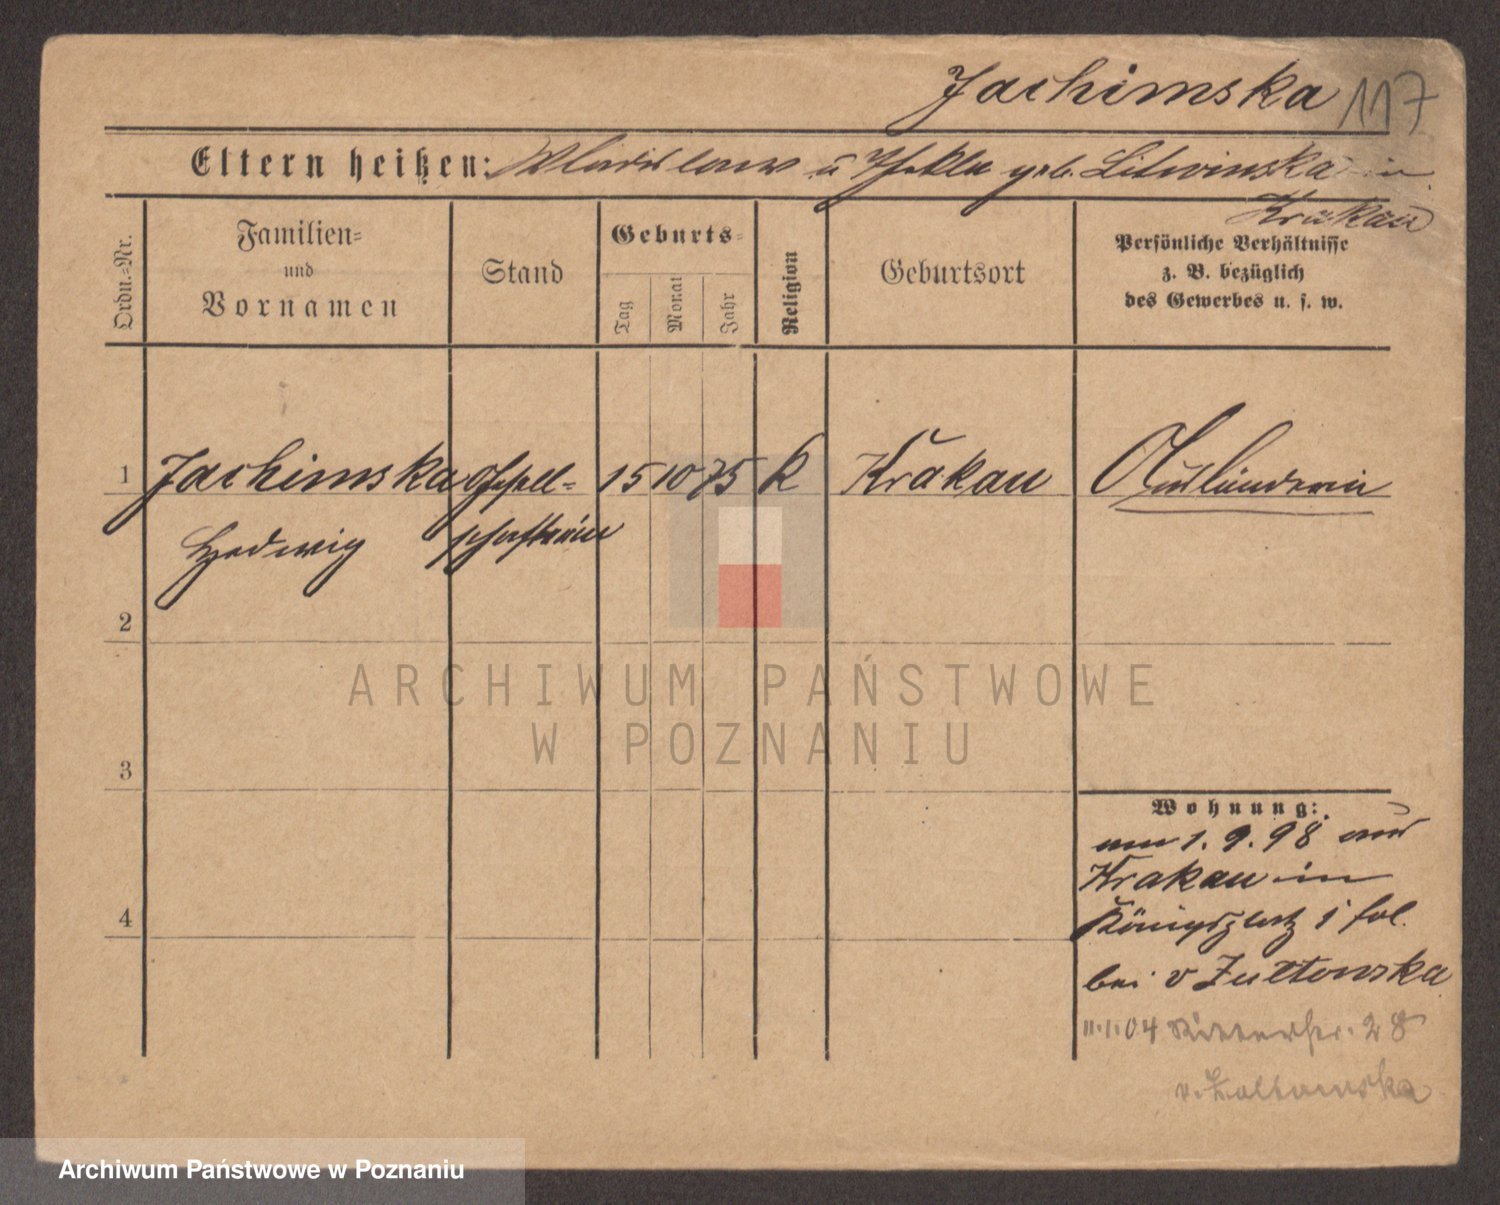 Jachimska 117
Eltern heißen: Wladislaus u Thekla geb. Litwinska in
Krakau
Ordn.=Nr.
Familien=
und
Vornamen
Stand
Geburts=
Tag
Monat
Jahr
Religion
Geburtsort
Persönliche Verhältnisse
z. B. bezüglich
des Gewerbes u. s. w.
1 Jachimska Gesell= 15 10 75 k Krakau Ausländerin
Hedwig schafterin
2
3
4
Wohnung:
am 1. 9. 98 aus
Krakau in
Königsplatz 1 fol.
bei v Zultowska
11.1.04 Ritterstr. 28
v. Zoltowska
ARCHIWUM PAŃSTWOWE
W POZNANIU
Archiwum Państwowe w Poznaniu